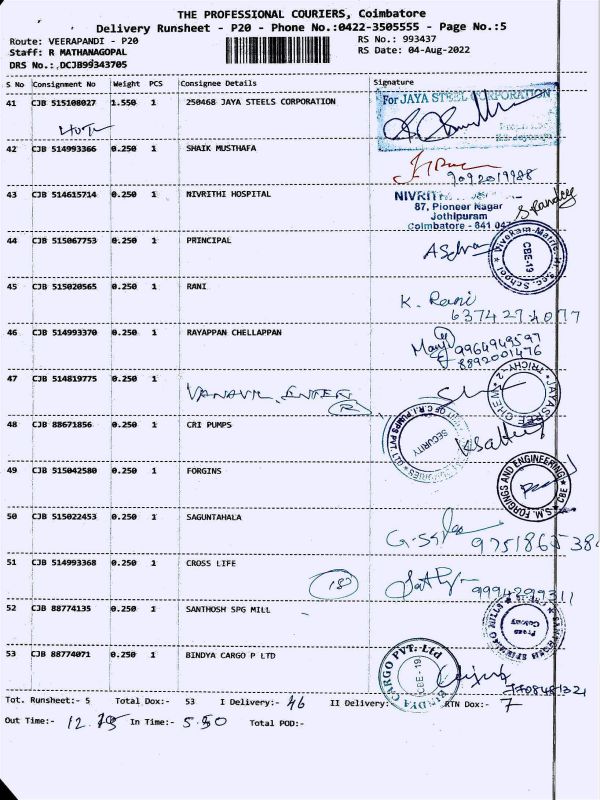 THE PROFESSIONAL COURIERS, Coimbatore
Delivery Runsheet - P20 - Phone No.:0422-3505555 - Page No.:5
Route: VEERAPANDI - P20 RS No.: 993437
Staff: R MATHANAGOPAL RS Date: 04-Aug-2022
DRS No.:.DCJB99343705
S No Consignment No Weight PCS Consignee Details Signature
41 CJB 515108027 1.550 1 250468 JAYA STEELS CORPORATION For JAYA STEEL CORPORATION
42 CJB 514993366 0.250 1 SHAIK MUSTHAFA
9092019988
43 CJB 514615714 0.250 1 NIVRITHI HOSPITAL
87, Pioneer Nagar
Jothipuram
Coimbatore - 641 047
44 CJB 515067753 0.250 1 PRINCIPAL
CBE-19
45 CJB 515020565 0.250 1 RANI K. Rani
6374274077
46 CJB 514993370 0.250 1 RAYAPPAN CHELLAPPAN
9964949597
8892001476
47 CJB 514819775 0.250 1
48 CJB 88671856 0.250 1 CRI PUMPS SECURITY
49 CJB 515042580 0.250 1 FORGINS
S.M. FORGINGS AND ENGINEERING CBE
50 CJB 515022453 0.250 1 SAGUNTAHALA
51 CJB 514993368 0.250 1 CROSS LIFE
9994299311
52 CJB 88774135 0.250 1 SANTHOSH SPG MILL
53 CJB 88774071 0.250 1 BINDYA CARGO P LTD
BINDYA CARGO PVT. Ltd CBE-19
7708481321
Tot. Runsheet:- 5 Total Dox:- 53 I Delivery:- 46 II Delivery: RTN Dox:- 7
Out Time:- In Time:- 5.50 Total POD:-